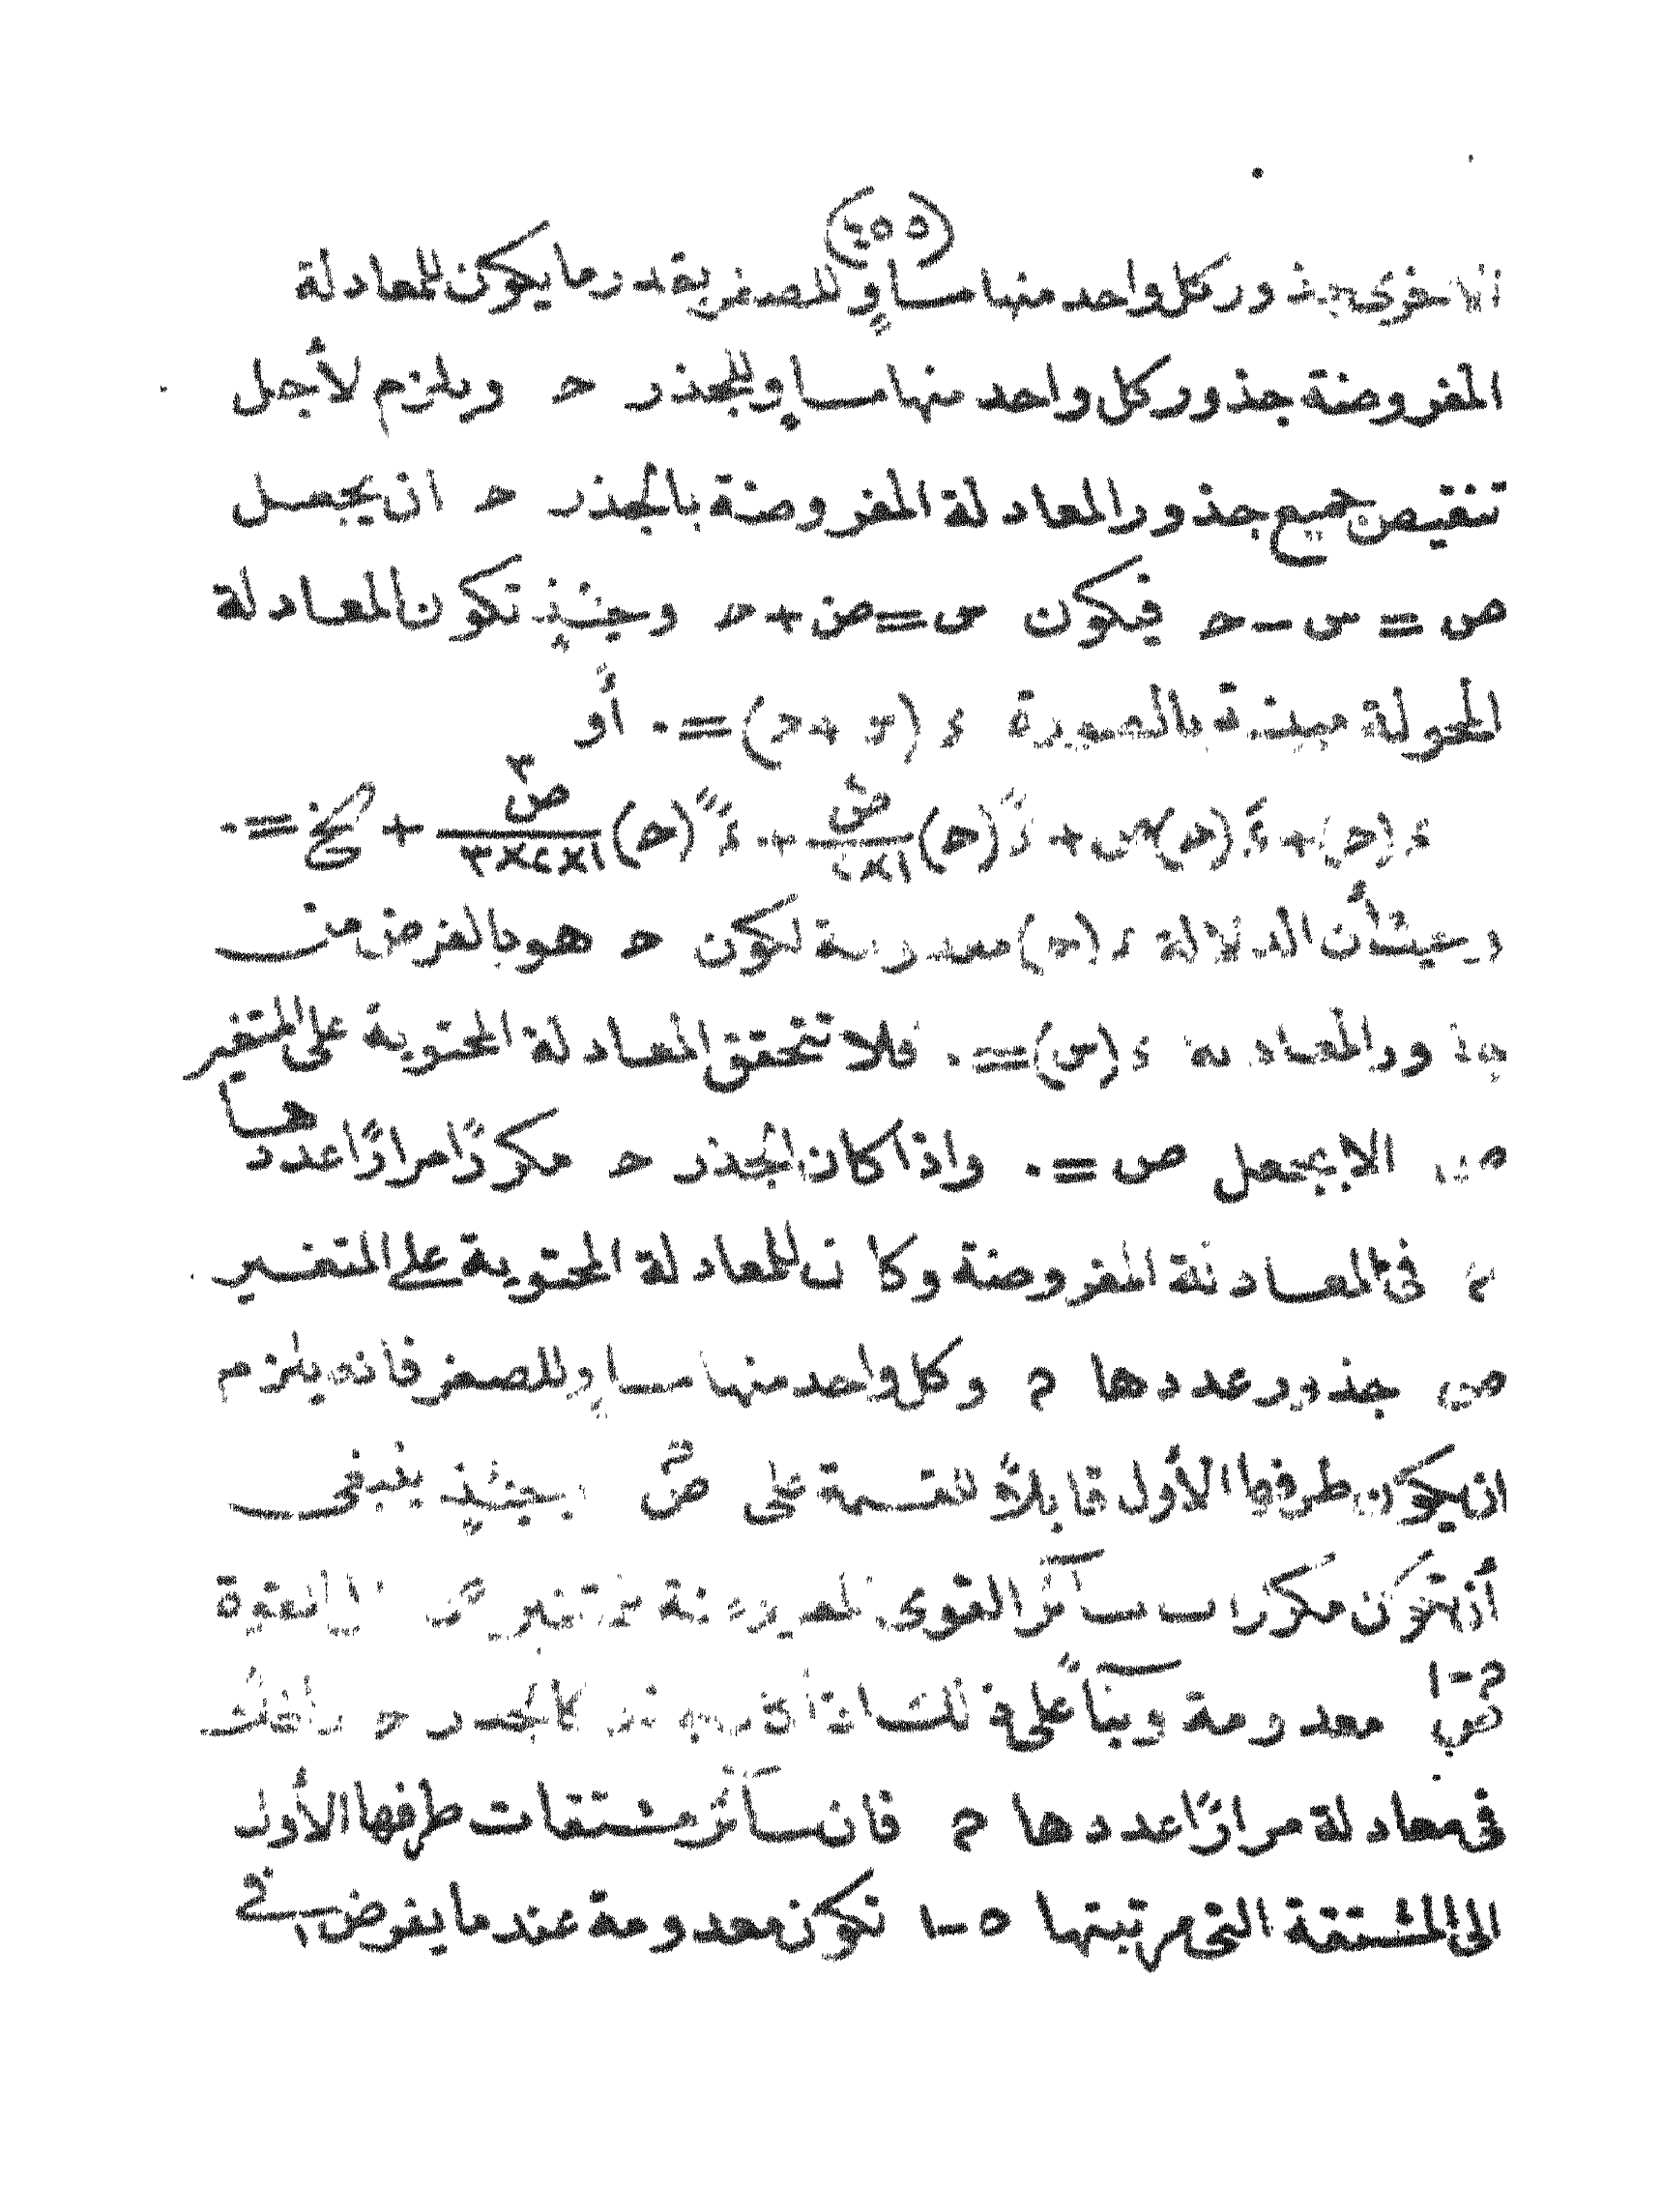 (٢٥٥)
الاخرى جذور كل واحد منها مساوٍ للصفر بقدر ما يكون للمعادلة
المفروضة جذور كل واحد منها مساوٍ للجذر حـ ويلزم لأجل
تنقيص جميع جذور المعادلة المفروضة بالجذر حـ ان يجعل
ص = س - حـ فيكون س = ص + حـ وحينئذٍ تكون المعادلة
المحولة مبينة بالصورة د (ص + حـ) = ٠ أو
د (حـ) + دَ (حـ) ص + دً (حـ) ص٢/٢×١ + دًَ (حـ) ص٣/٣×٢×١ + الخ = ٠
وحيث أن الدلالة د (حـ) معدومة لكون حـ هو بالفرض من
جذور المعادلة د (س) = ٠ فلا تتحقق المعادلة المحتوية على المتغير
ص الا بجعل ص = ٠ واذا كان الجذر حـ مكررًا مرارًا عددها
م فى المعادلة المفروضة وكان للمعادلة المحتوية على المتغير
ص جذور عددها م وكل واحد منها مساوٍ للصفر فانه يلزم
ان يكون طرفها الأول قابلاً للقسمة على صم وحينئذٍ ينبغى
أن تكون مكررات سائر القوى للمتغير ص الى القوة
صم-١ معدومة وبناً على ذلك اذا كالجذر حـ داخلاً
فى معادلة مرارًا عددها م فان سائر مشتقات طرفها الأول
الى المشتقة التى مرتبتها ٥-١ تكون معدومة عند ما يفرض فى